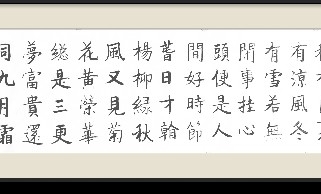 有涼風冬
有雪若無
閒事挂心
頭便是人
間好時節
昔日才
楊柳緑秋
風又見菊
花黄榮華
総是三更
夢富貴還
同九月霜